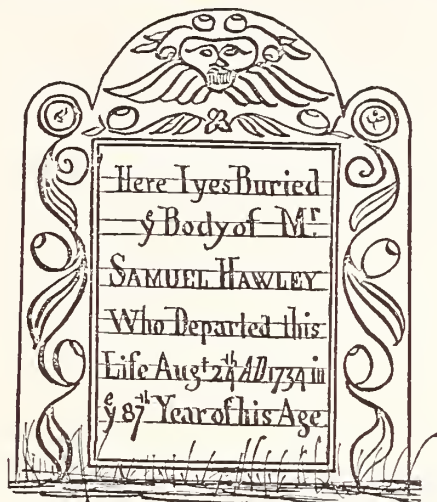 Here Lyes Buried
yͤ Body of Mʳ.
SAMUEL HAWLEY
Who Departed this
Life Augᵗ 24ᵗʰ AD 1734 in
yͤ 87ᵗʰ Year of his Age